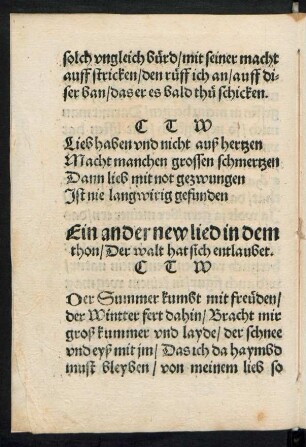 solch vngleich bürd/mit seiner macht
auff stricken/den rüff ich an/auff di-
ser ban/das er es bald thů schicken.
C T W
Lieb haben vnd nicht auß hertzen
Macht manchen grossen schmertzen
Dann lieb mit not gezwungen
Ist nie langwirig gefunden
Ein ander new lied in dem
thon/Der walt hat sich entlaubet.
C T W
Der Summer kumbt mit freüden/
der Wintter fert dahin/Bracht mir
groß kummer vnd layde/der schnee
vnd eyß mit jm/Das ich da haymbd
must bleyben/von meinem lieb so